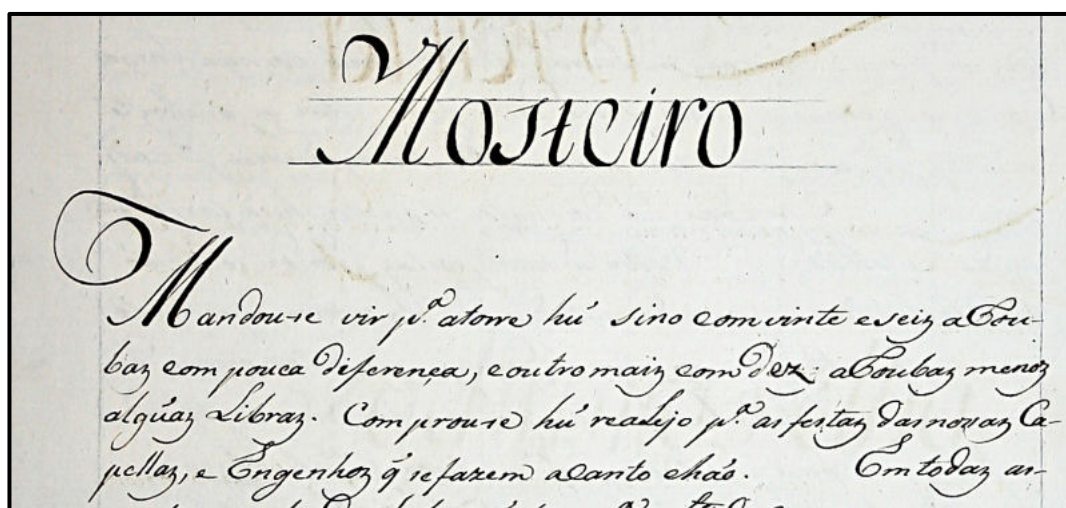 Mosteiro
Mandou-se vir p.ª atorre hú sino com vinte eseiz aRou-
baz com pouca diferença, eoutro maiz com Dez: aRoubaz menoz
algúaz Libraz. Comprou-se hú realejo p.ª as festaz das nossaz Ca-
pellaz, e Engenhoz q̃ sefazem aCanto cháo. Em todaz as-